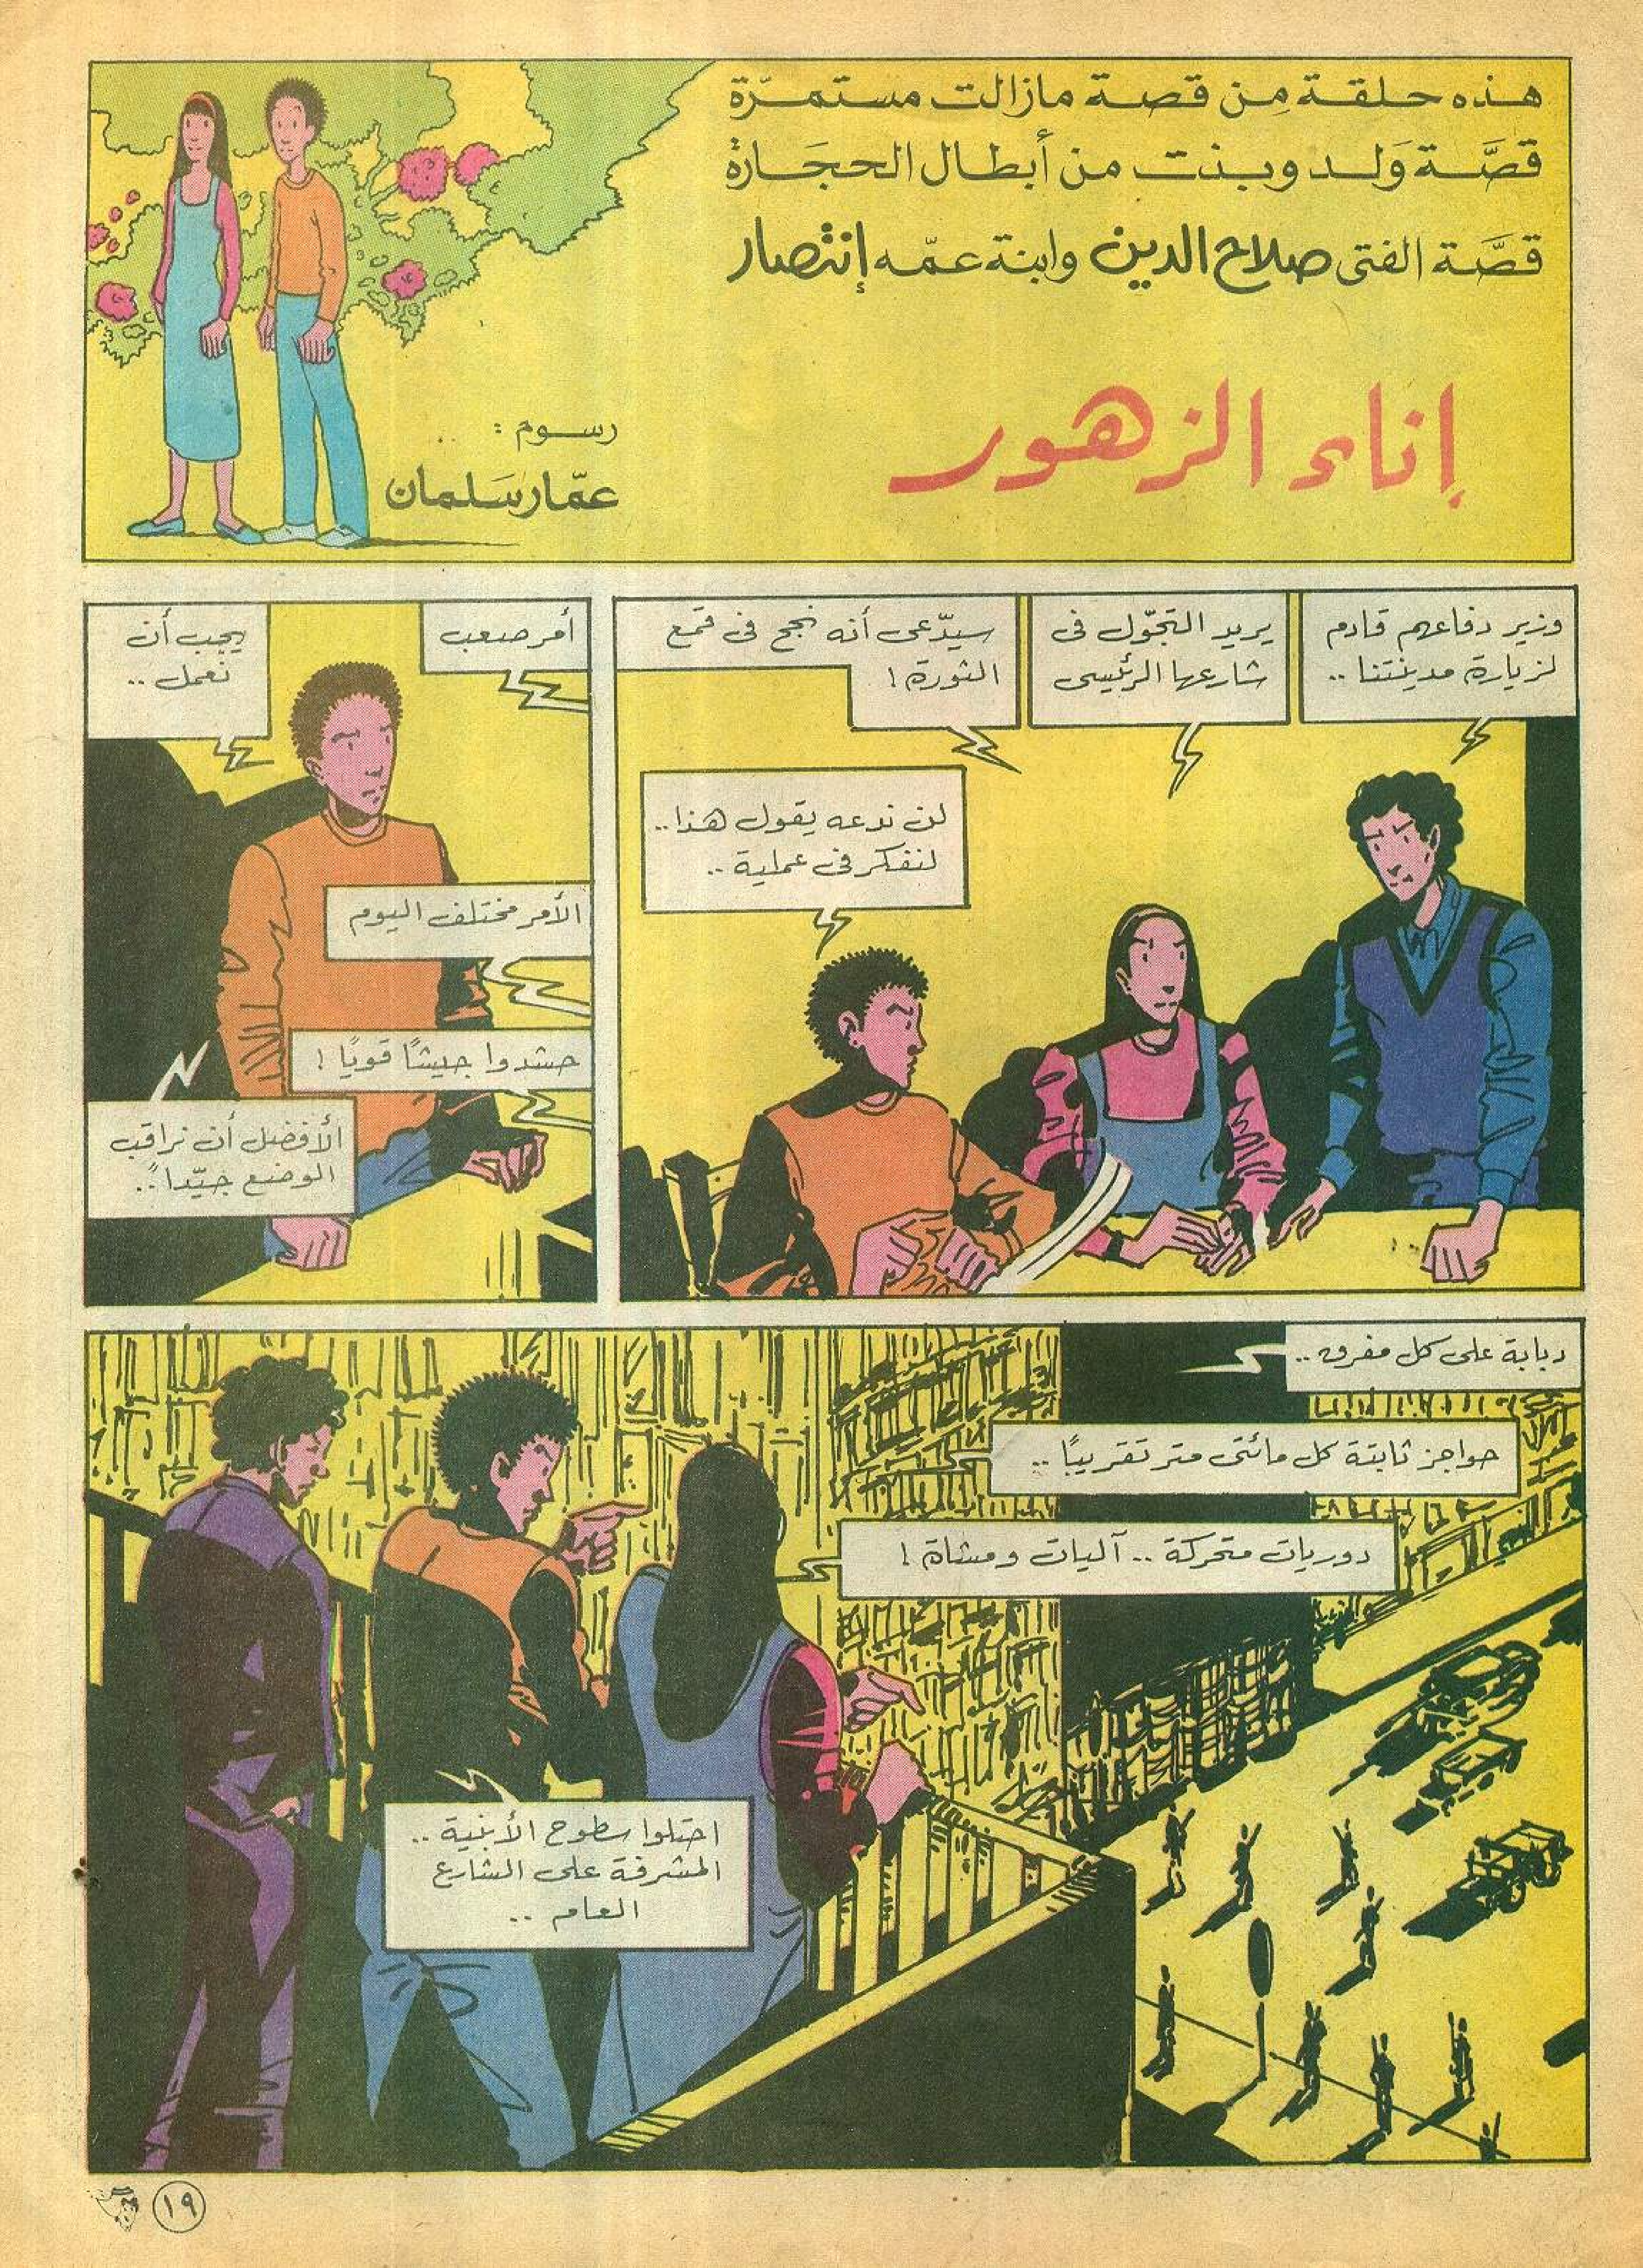 هذه حلقة من قصة مازالت مستمرّة
قصَّة وَلد وبنت من أبطال الحجَارة
قصَّة الفتى صلاح الدين وابنة عمّه إنتصار
إناء الزهور
رسوم : ..
عمّار سَلمان
وزير دفاعهم قادم
لزيارة مدينتنا ..
يريد التجوّل في
شارعها الرئيسى
سيدّعى أنه نجح في قمع
الثورة !
لن ندعه يقول هذا ..
لنفكر في عملية ..
أمر صعب
يجب أن
نعمل ..
الأمر مختلف اليوم
حشدوا جيشاً قويًا !
الأفضل أن نراقب
الوضع جيّداً ..
دبابة على كل مفرق ..
حواجز ثابتة كل مائتى متر تقريبًا ..
دوريات متحركة .. آليات ومشاة !
احتلوا سطوح الأبنية ..
المشرفة على الشارع
العام ..
١٩